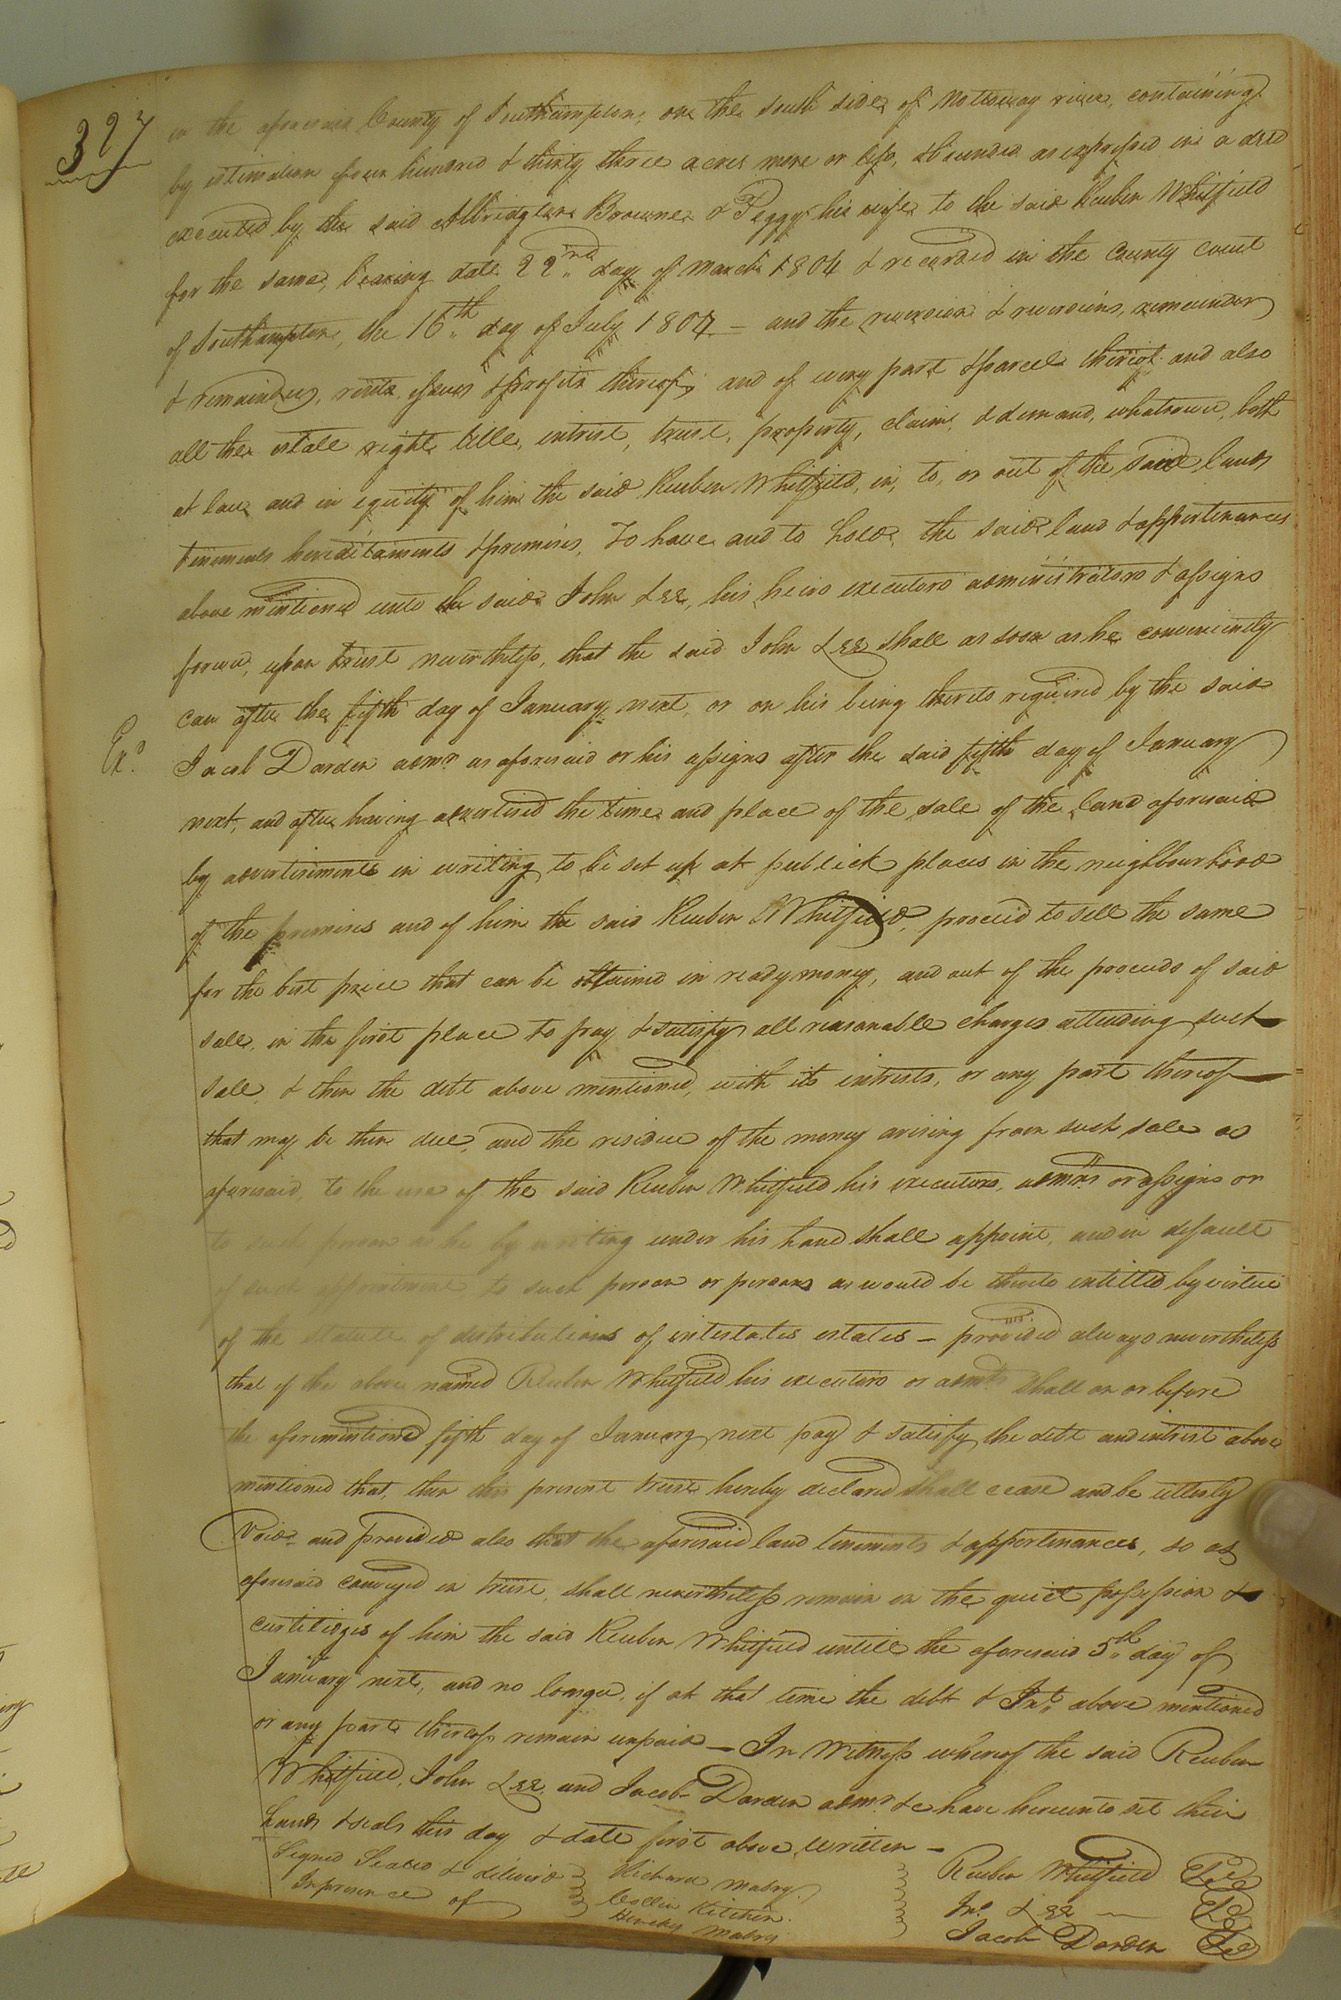 327
in the aforesaid County of Southampton, on the south side of Nottoway river, containing
by estimation four hundred & thirty three acres more or less, & bounded as expressed in a deed
executed by the said Albridgton Browne & Peggy his wife to the said Reuben Whitfield
for the same, bearing date 22nd day of March 1804 & recorded in the County court
of Southampton, the 16th day of July 1804 — and the reversion & reversions, remainder
& remainders, rents issues & profits thereof, and of every part & parcel thereof and also
all the estate right title, intrest, trust, property, claim & demand, whatsoever, both
at law and in equity of him the said Reuben Whitfield, in, to, or out of the said lands
tenements hereditaments & premises, To have and to hold the said land & appertenances
above mentioned unto the said John Lee, his heirs executors administrators & assigns
forever, upon trust neverthless, that the said John Lee shall as soon as he conveniently
can after the fifth day of January next, or on his being thereto required by the said
Exd.
Jacob Darden admr as aforesaid or his assigns after the said fifth day of January
next, and after having advertised the time and place of the sale of the land aforesaid
by advertisments in writing to be set up at publick places in the neighbourhood
of the premises and of him the said Reuben Whitfield, proceed to sell the same
for the best price that can be obtained in ready money, and out of the proceeds of said
sale, in the first place to pay & satisfy all reasonable charges attending such
sale, & then the debt above mentioned, with its intrests, or any part thereof
that may be then due, and the residue of the money arising from such sale as
aforesaid, to the use of the said Reuben Whitfield his executors, admrs or assigns or
to such person as he by writing under his hand shall appoint, and in default
of such appointment to such person or persons as would be thereto intitled by virtue
of the statute of distributions of intestates estates — provided always neverthless
that if the above named Reuben Whitfield his executors or admrs shall on or before
the aforementioned fifth day of January next pay & satisfy the debt and intrest above
mentioned that, then this present trust hereby declared shall cease and be utterly
Void and provided also that the aforesaid land tenements & appertenances, so as
aforesaid conveyed in trust, shall neverthless remain in the quiet possession &
of him the said Reuben Whitfield untill the aforesaid 5th day of
January next, and no longer, if at that time the debt & Int. above mentioned
or any part thereof remain unpaid — In Witness whereof the said Reuben
Whitfield, John Lee and Jacob Darden admr &c have hereunto set their
hands & seals this day & date first above written —
Signed Sealed & deliverd Richard Mabry Reuben Whitfield
In presence of Kitchen Jno. Lee —
Mabry Jacob Darden